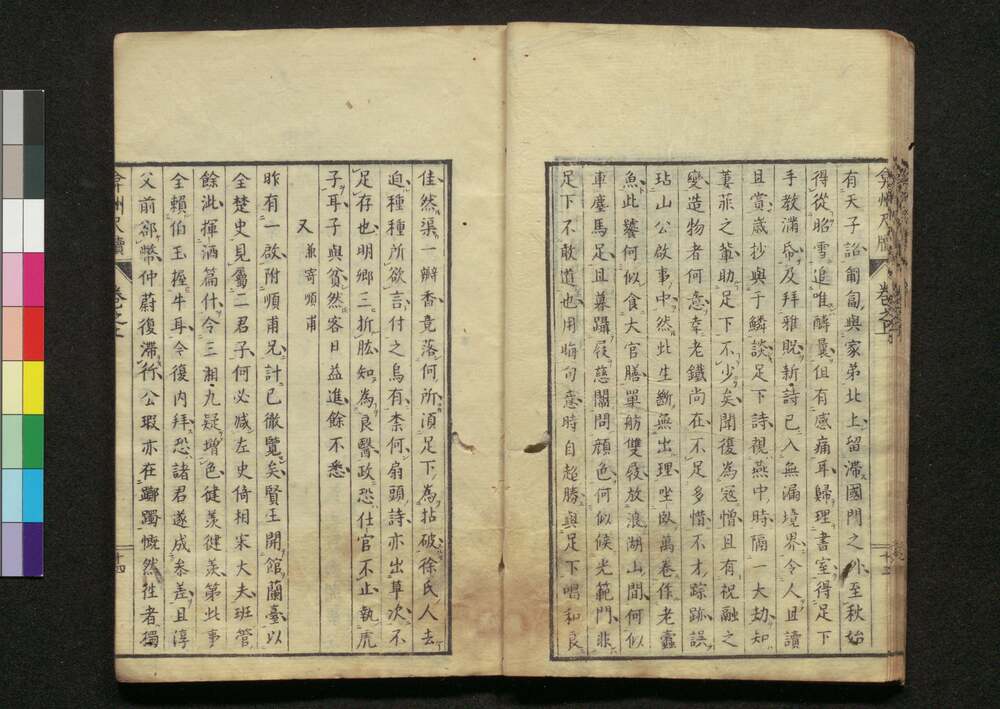 弇州尺牘 卷之下 十三
有天子詔匍匐與家弟北上留滯國門之外至秋始
得從昭雪追唯酷釁但有感痛耳歸理書室得足下
手教滿帋及拜雅貺新詩已入無漏境界令人且讀
且賞歲抄與于鱗談足下詩視燕中時隔一大劫知
萋菲之輩助足下不少矣聞復為寇憎且有祝融之
變造物者何意幸老鐵尚在不足多惜不才踪跡誤
玷山公啟事中然此生斷無出理坐臥萬卷作老蠹
魚此饕何似食大官膳單舫雙發放浪湖山間何似
車塵馬足且暮躡屐慈闈問顏色何似候光範門非
足下不敢道也用晦旬憲時自超勝與足下唱和良
佳然渠一瓣香竟落何所須足下為拈破徐氏人去
迫種種所欲言付之烏有柰何扇頭詩亦出草次不
足存也明卿三折肱知為良醫政恐仕官不止執虎
子耳子與貧然客日益進餘不悉
又 兼寄順甫
昨有一啟附順甫兄計已徹覽矣賢王開館蘭臺以
全楚史見屬二君子何必減左史倚相宋大夫班管
餘沘揮洒篇什令三湘九疑增色健羨健羨第此事
全賴伯玉握牛耳今復內拜恐諸君遂成參差且淳
父前卻幣仲蔚復滯行公瑕亦在躑躅慨然往者獨
弇州尺牘 卷之下 十四